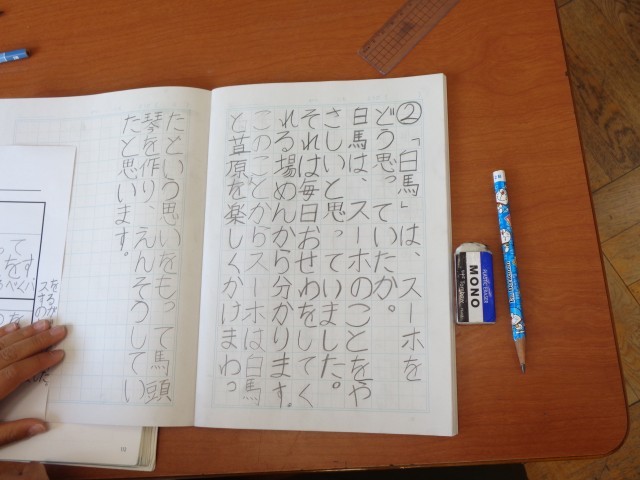 ②「白馬」は、スーホを
どう思っていたか。
白馬は、スーホのことをや
さしいと思っていました。
それは毎日おせわをしてく
れる場めんから分かります。
このことからスーホは白馬
と草原を楽しくかけまわっ
たという思いをもって馬頭
琴を作り、えんそうしてい
たと思います。
MONO